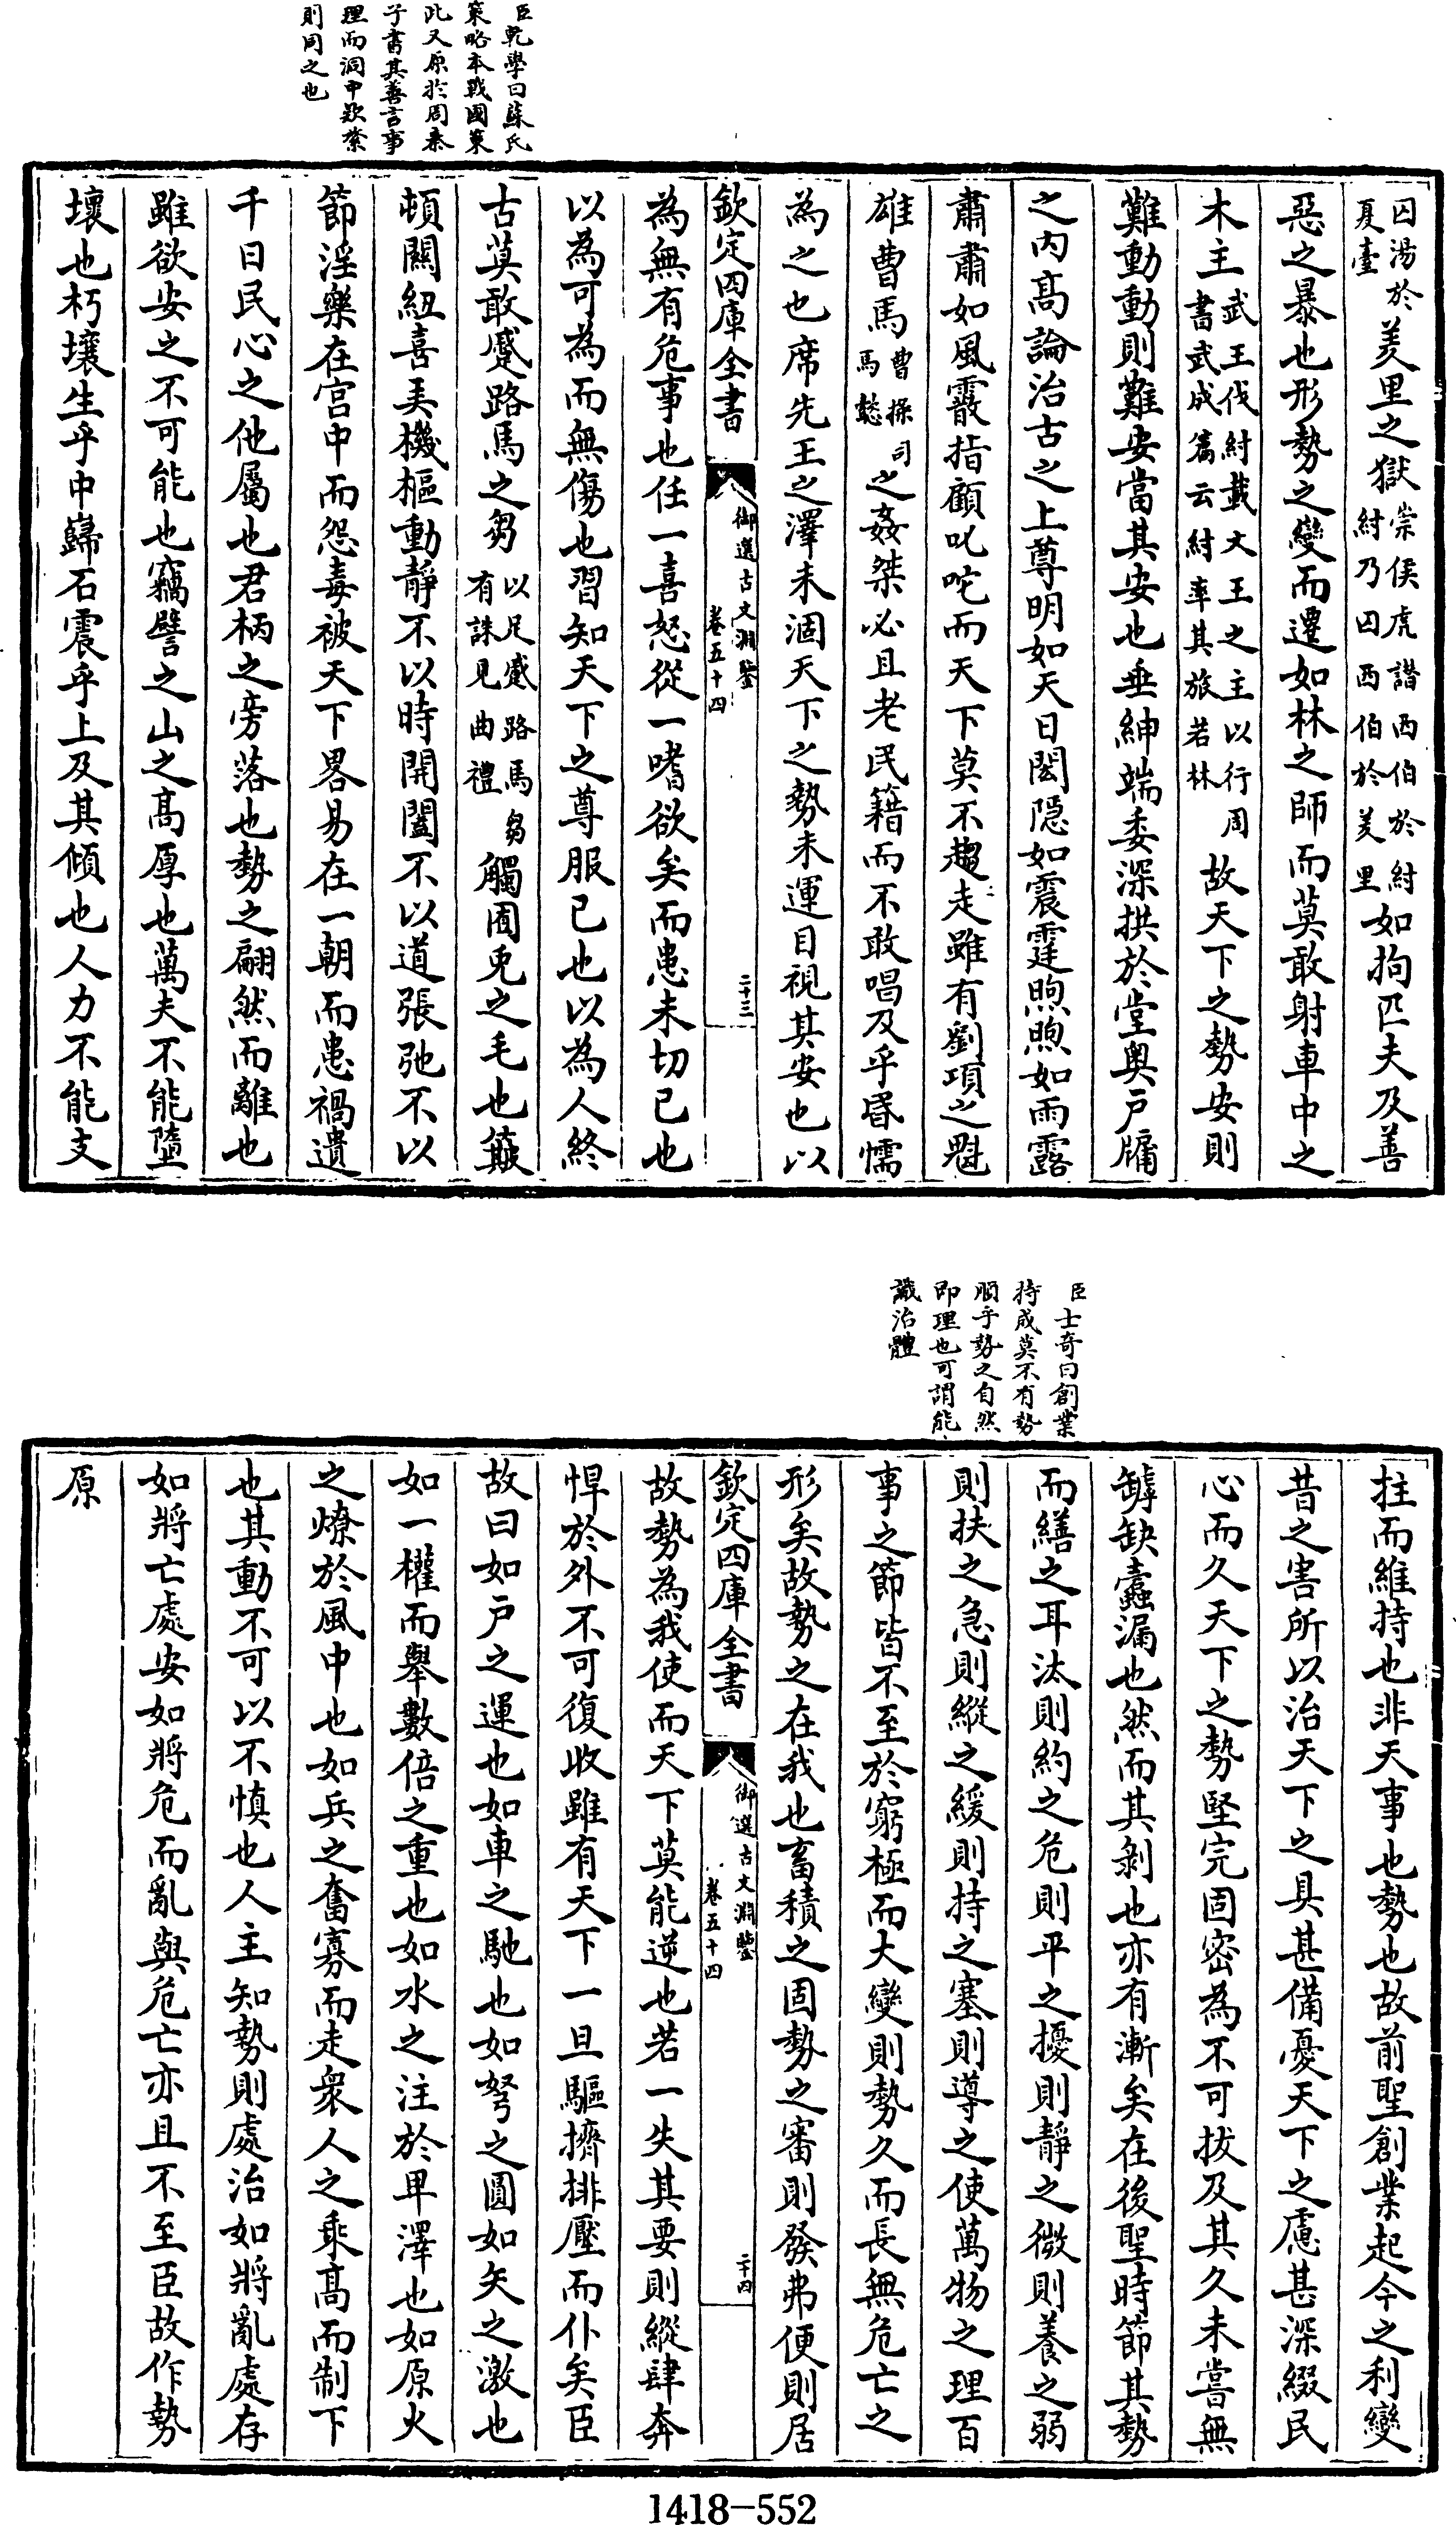 臣乾學曰蘇氏
策略本戰國策
此又原於周秦
子書其善言事
理而洞中欵綮
則同之也
囚湯於
夏臺
羑里之獄
崇侯虎譖西伯於紂
紂乃囚西伯於羑里
如拘匹夫及善
惡之暴也形勢之變而遷如林之師而莫敢射車中之
木主
武王伐紂載文王之主以行周
書武成篇云紂率其旅若林
故天下之勢安則
難動動則難安當其安也垂紳端委深拱於堂奥戸牖
之内髙論治古之上尊明如天日閎隠如震霆煦煦如雨露
肅肅如風霰指顧叱咤而天下莫不趨走雖有劉項之魁
雄曹馬
曹操司
馬懿
之姦桀必且老民籍而不敢唱及乎昬懦
為之也席先王之澤未涸天下之勢未運目視其安也以
欽定四庫全書
御選古文淵鑒
卷五十四
二十三
為無有危事也任一喜怒從一嗜欲矣而患未切已也
以為可為而無傷也習知天下之尊服已也以為人終
古莫敢蹙路馬之芻
以足蹙路馬芻
有誅見曲禮
觸囿兎之毛也簸
頓關紐喜美機樞動靜不以時開闔不以道張弛不以
節淫樂在宫中而怨毒被天下畧易在一朝而患禍遺
千日民心之他屬也君柄之旁落也勢之翩然而離也
雖欲安之不可能也竊譬之山之髙厚也萬夫不能墮
壞也朽壤生乎中巋石震乎上及其傾也人力不能支
臣士奇曰創業
持成莫不有勢
順乎勢之自然
即理也可謂能
識治體
拄而維持也非天事也勢也故前聖創業起今之利變
昔之害所以治天下之具甚備憂天下之慮甚深綴民
心而久天下之勢堅完固密為不可拔及其久未嘗無
罅缺蠧漏也然而其剝也亦有漸矣在後聖時節其勢
而繕之耳汰則約之危則平之擾則靜之微則養之弱
則扶之急則縱之緩則持之塞則導之使萬物之理百
事之節皆不至於窮極而大變則勢久而長無危亡之
形矣故勢之在我也畜積之固勢之審則發弗便則居
欽定四庫全書
御選古文淵鑒
卷五十四
二十四
故勢為我使而天下莫能逆也若一失其要則縱肆奔
悍於外不可復收雖有天下一旦驅擠排壓而仆矣臣
故曰如戸之運也如車之馳也如弩之圓如矢之激也
如一權而舉數倍之重也如水之注於卑澤也如原火
之燎於風中也如兵之奮寡而走衆人之乘髙而制下
也其動不可以不慎也人主知勢則處治如將亂處存
如將亡處安如將危而亂與危亡亦且不至臣故作勢
原
1418-552